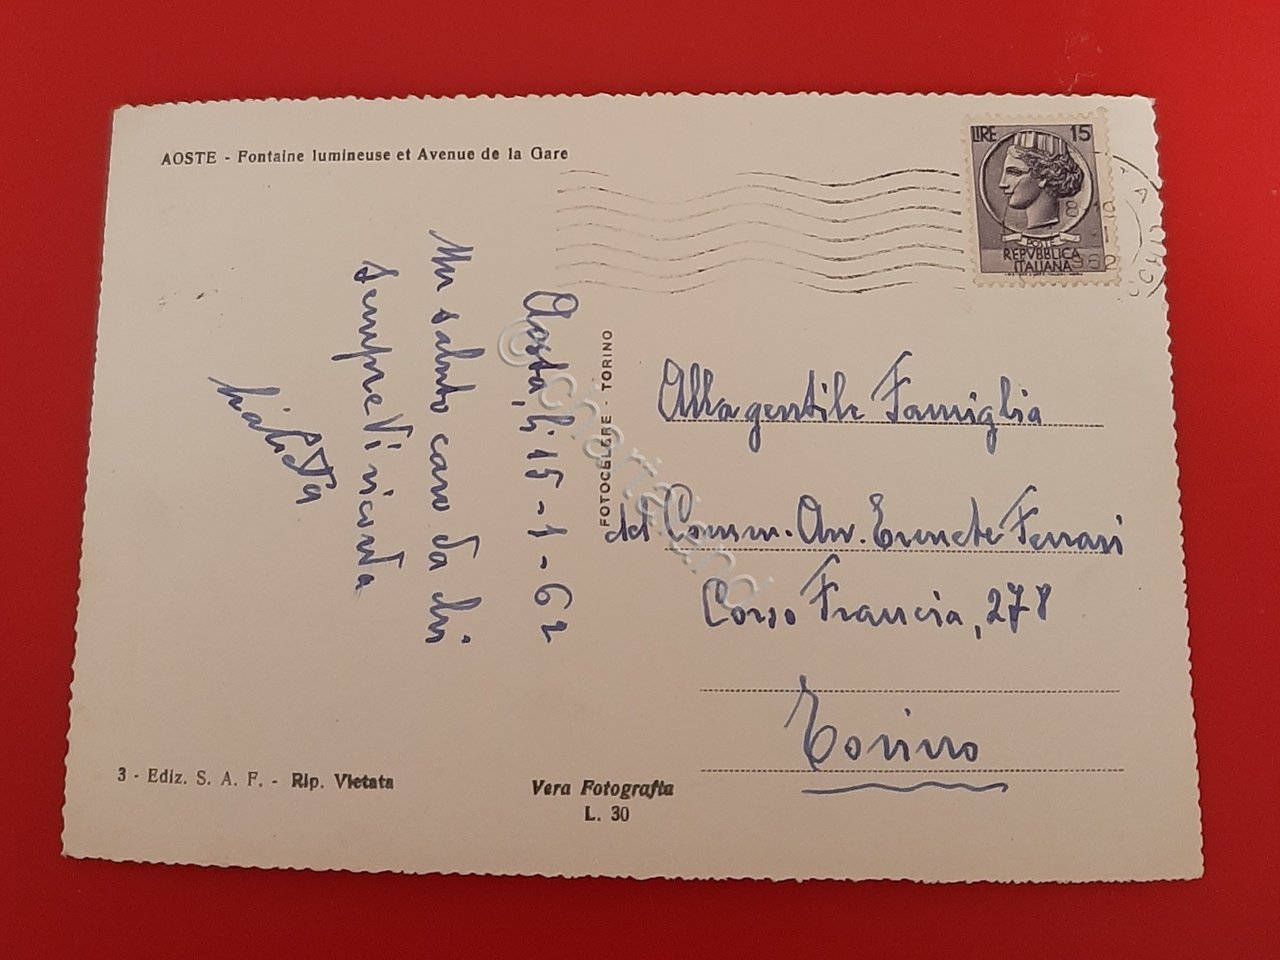 AOSTE - Fontaine lumineuse et Avenue de la Gare
LIRE 15
POSTE
REPVBBLICA
ITALIANA
Aosta, li 15-1-62
Un saluto caro da chi
sempre Vi ricorda
FOTOCELERE - TORINO
Alla gentile Famiglia
del Comm. Avv. Ermete Ferrari
Corso Francia, 278
Torino
3 - Ediz. S. A. F. - Rip. Vietata
Vera Fotografia
L. 30
© chartaland